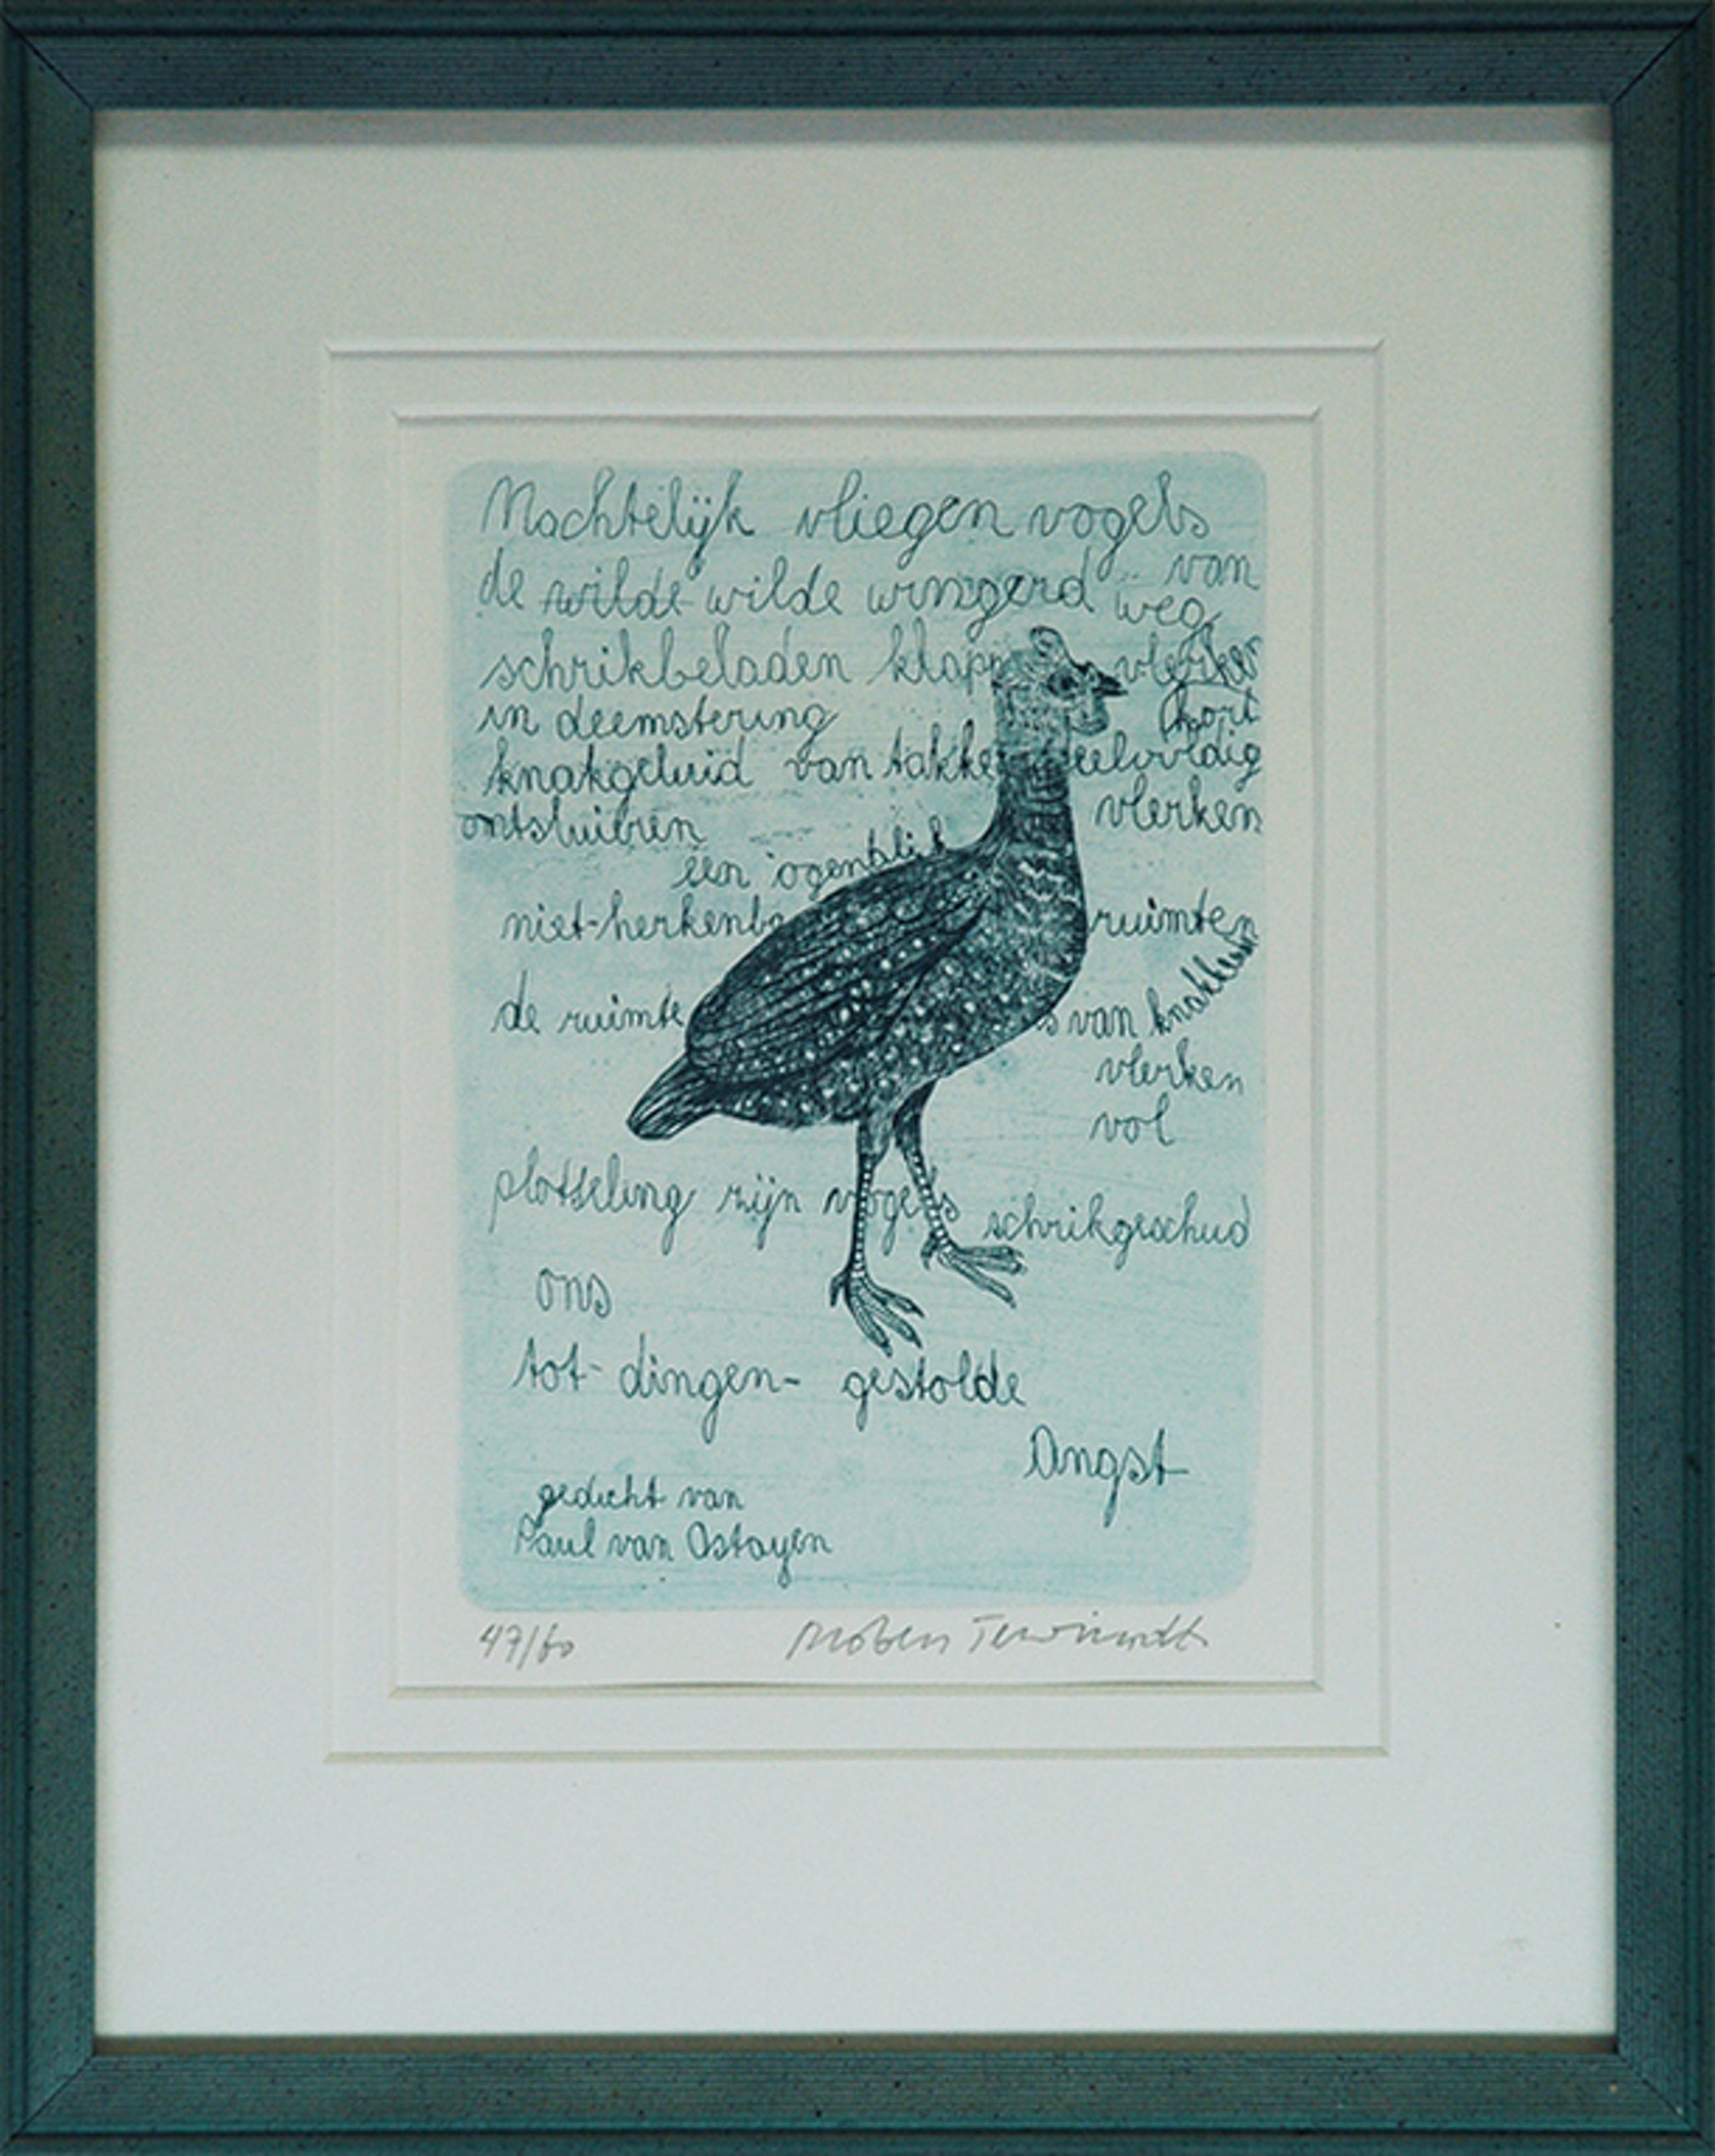 Nachtelijk vliegen vogels
van
de wilde wilde wingerd weg
schrikbeladen klapp vlerken
in deemstering kort
knakgeluid van takke veelvoudig
ontsluieren vlerken
een ogenblik
niet-herkenba ruimten
de ruimte s van knakken
vlerken
vol
plotseling zijn vogels schrikgeschud
ons
tot-dingen- gestolde
Angst
gedicht van
Paul van Ostayen
47/60